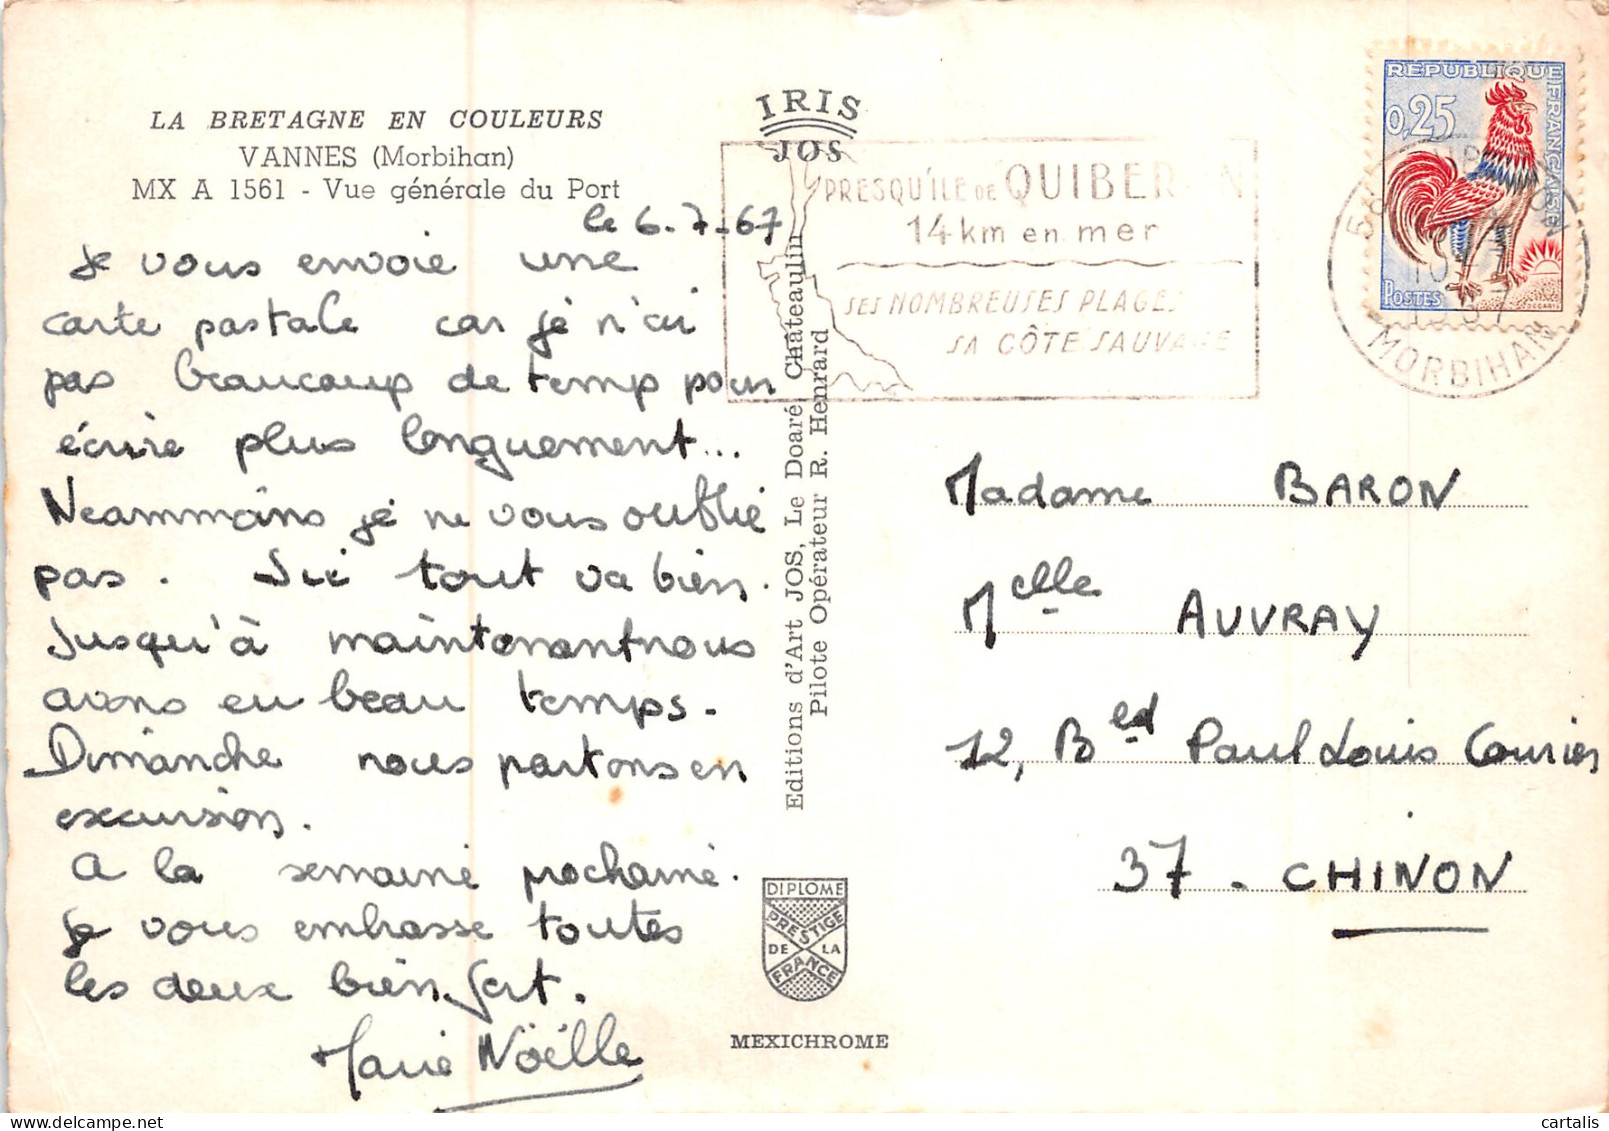 LA BRETAGNE EN COULEURS
VANNES (Morbihan)
MX A 1561 - Vue générale du Port
le 6-7-67
Je vous envoie une
carte postale car je n'ai
pas beaucoup de temps pour
écrire plus longuement...
Neammoins je ne vous oublie
pas. Ici tout va bien.
Jusqu'à maintenant nous
avons eu beau temps.
Dimanche nous partons en
excursion.
A la semaine prochaine.
Je vous embrasse toutes
les deux bien fort.
Marie Noëlle
IRIS
JOS
Editions d'Art JOS, Le Doaré, Chateaulin
Pilote Opérateur R. Henrard
DIPLOME
PRESTIGE
DE LA
FRANCE
MEXICHROME
PRESQU'ÎLE DE QUIBERON
14 km en mer
SES NOMBREUSES PLAGES
SA CÔTE SAUVAGE
REPUBLIQUE FRANÇAISE
0,25
POSTES
DECARIS
MORBIHAN
Madame BARON
Melle AUVRAY
12, Bed Paul Louis Courier
37 - CHINON
cartalis | www.delcampe.net